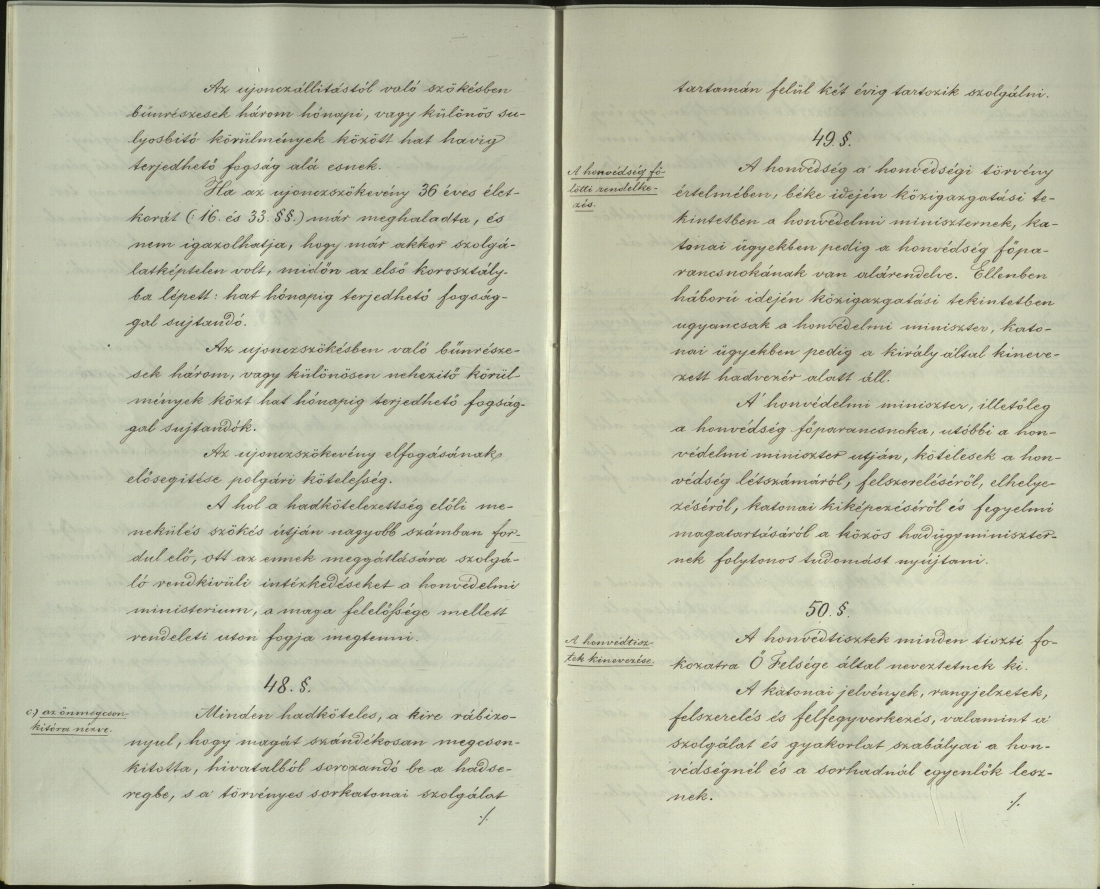 Az ujonczállitástól való szökésben
bűnrészesek három hónapi, vagy különös su-
lyosbitó körülmények között hat havig
terjedhető fogság alá esnek.
Ha az ujonczszökevény 36 éves élet-
korát (:16. és 33. §§.) már meghaladta, és
nem igazolhatja, hogy már akkor szolgá-
latképtelen volt, midőn az első korosztály-
ba lépett: hat hónapig terjedhető fogság-
gal sujtandó.
Az ujonczszökésben való bűnrésze-
sek három, vagy különösen nehezitő körül-
mények közt hat hónapig terjedhető fogság-
gal sujtandók.
Az ujonczszökevény elfogásának
elősegitése polgári kötelesség.
A hol a hadkötelezettség előli me-
nekülés szökés útján nagyobb számban for-
dul elő, ott az ennek meggátlására szolgá-
ló rendkivüli intézkedéseket a honvédelmi
ministerium, a maga felelőssége mellett
rendeleti uton fogja megtenni.
48. §.
c.) az önmegcson-
kitóra nézve.
Minden hadköteles, a kire rábizo-
nyul, hogy magát szándékosan megcson-
kitotta, hivatalból sorozandó be a hadse-
regbe, s a törvényes sorkatonai szolgálat
./.
tartamán felül két évig tartozik szolgálni.
49. §.
A honvédség fö-
lötti rendelke-
zés.
A honvédség a honvédségi törvény
értelmében, béke idején közigazgatási te-
kintetben a honvédelmi miniszternek, ka-
tonai ügyekben pedig a honvédség főpa-
rancsnokának van alárendelve. Ellenben
háború idején közigazgatási tekintetben
ugyancsak a honvédelmi miniszter, kato-
nai ügyekben pedig a király által kineve-
zett hadvezér alatt áll.
A honvédelmi miniszter, illetőleg
a honvédség főparancsnoka, utóbbi a hon-
védelmi miniszter utján, kötelesek a hon-
védség létszámáról, felszereléséről, elhelye-
zéséről, katonai kiképezéséről és fegyelmi
magatartásáról a közös hadügyminiszter-
nek folytonos tudomást nyújtani.
50. §.
A honvédtisz-
tek kinevezése.
A honvédtisztek minden tiszti fo-
kozatra Ő Felsége által neveztetnek ki.
A katonai jelvények, rangjelzetek,
felszerelés és felfegyverkezés, valamint a
szolgálat és gyakorlat szabályai a hon-
védségnél és a sorhadnál egyenlők lesz-
nek.
./.